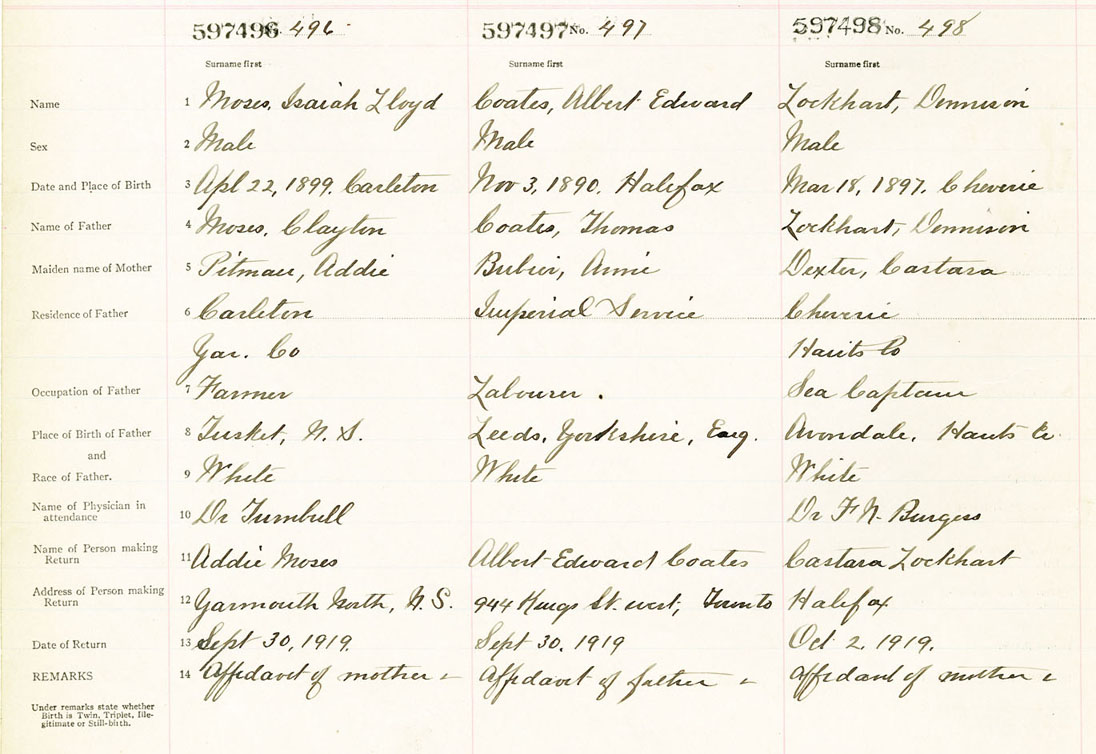 597496 No. 496 597497 No. 497 597498 No. 498
Surname first Surname first Surname first
Name 1 Moses, Isaiah Lloyd Coates, Albert Edward Lockhart, Dennison
Sex 2 Male Male Male
Date and Place of Birth 3 Apl 22, 1899. Carleton Nov 3, 1890. Halifax Mar 18, 1897. Cheverie
Name of Father 4 Moses, Clayton Coates, Thomas Lockhart, Dennison
Maiden name of Mother 5 Pitman, Addie Bubier, Annie Dexter, Castara
Residence of Father 6 Carleton Imperial Service Cheverie
Yar. Co Hants Co
Occupation of Father 7 Farmer Labourer. Sea Captain
Place of Birth of Father 8 Tusket, N.S. Leeds, Yorkshire, Eng. Avondale, Hants Co.
and
Race of Father. 9 White White White
Name of Physician in
attendance 10 Dr Turnbull Dr F N. Burgess
Name of Person making
Return 11 Addie Moses Albert Edward Coates Castara Lockhart
Address of Person making
Return 12 Yarmouth North, N.S. 944 Kings St. west, Toronto Halifax
Date of Return 13 Sept 30, 1919. Sept 30. 1919 Oct 2. 1919.
REMARKS 14 Affidavit of mother Affidavit of father Affidavit of mother
Under remarks state whether
Birth is Twin, Triplet, Ille-
gitimate or Still-birth.